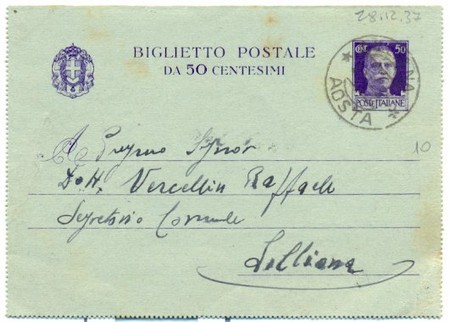 28.12.37
BIGLIETTO POSTALE
DA 50 CENTESIMI
50
POSTE ITALIANE
NA
AOSTA
10
Signor
Dott. Vercellin Raffaele
Segretario Comunale
Lilliana